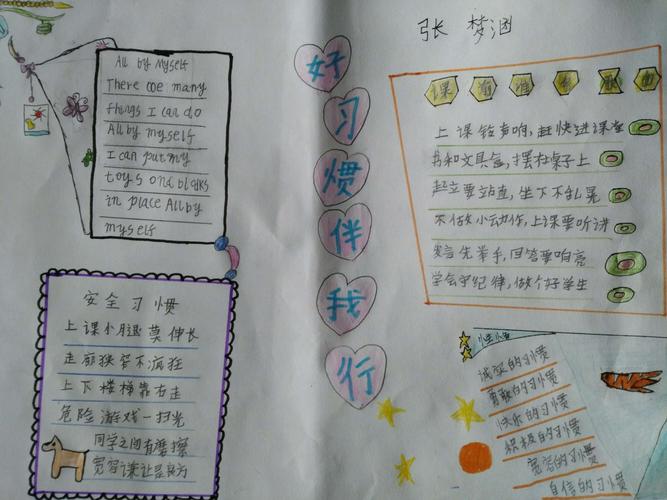 张梦涵
好习惯伴我行
All by Myself
There are many
things I can do
All by myself
I can put my
toys and blocks
in place All by
myself
安全习惯
上课小腿莫伸长
走廊狭窄不疯狂
上下楼梯靠右走
危险游戏一扫光
同学之间有磨擦
宽容谦让是良方
课前准备歌
上课铃声响，赶快进课堂
书和文具盒，摆在桌子上
起立要站直，坐下不乱晃
不做小动作，上课要听讲
发言先举手，回答要响亮
学会守纪律，做个好学生
诚实的习惯
勇敢的习惯
快乐的习惯
积极的习惯
宽容的习惯
自信的习惯